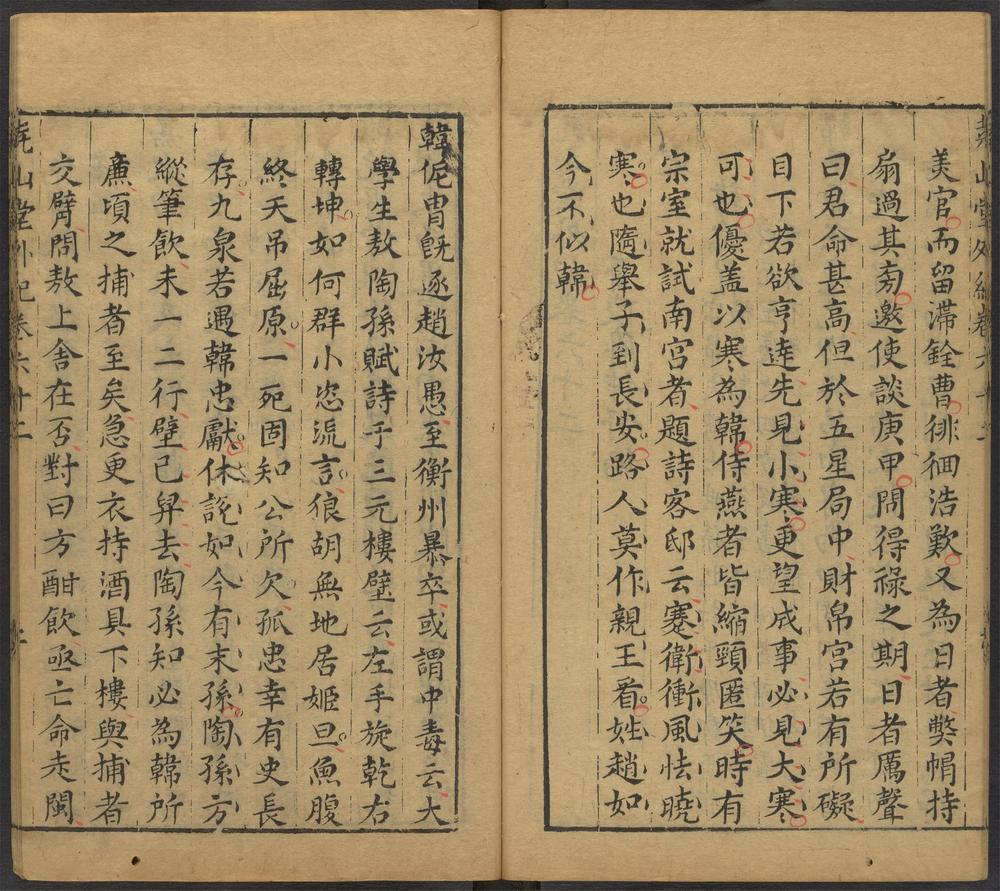 美官而留滯銓曹徘徊浩歎又為日者獘帽持
扇過其旁邀使談庚甲問得祿之期日者厲聲
曰君命甚高但於五星局中財帛宮若有所礙
目下若欲亨逹先見小寒更望成事必見大寒
可也優盖以寒為韓侍燕者皆縮頸匿笑時有
宗室就試南宮者題詩客邸云蹇衛衝風怯曉
寒也隨舉子到長安路人莫作親王看姓趙如
今不似韓
韓侂胄旣逐趙汝愚至衡州暴卒或謂中毒云大
學生敖陶孫賦詩于三元樓壁云左手旋乾右
轉坤如何群小恣流言狼胡無地居姬旦魚腹
終天吊屈原一死固知公所欠孤忠幸有史長
存九泉若遇韓忠獻休說如今有末孫陶孫方
縱筆飲未一二行壁已舁去陶孫知必為韓所
廉頃之捕者至矣急更衣持酒具下樓與捕者
交臂問敖上舍在否對曰方酣飲亟亡命走閩
堯山堂外紀卷六十二